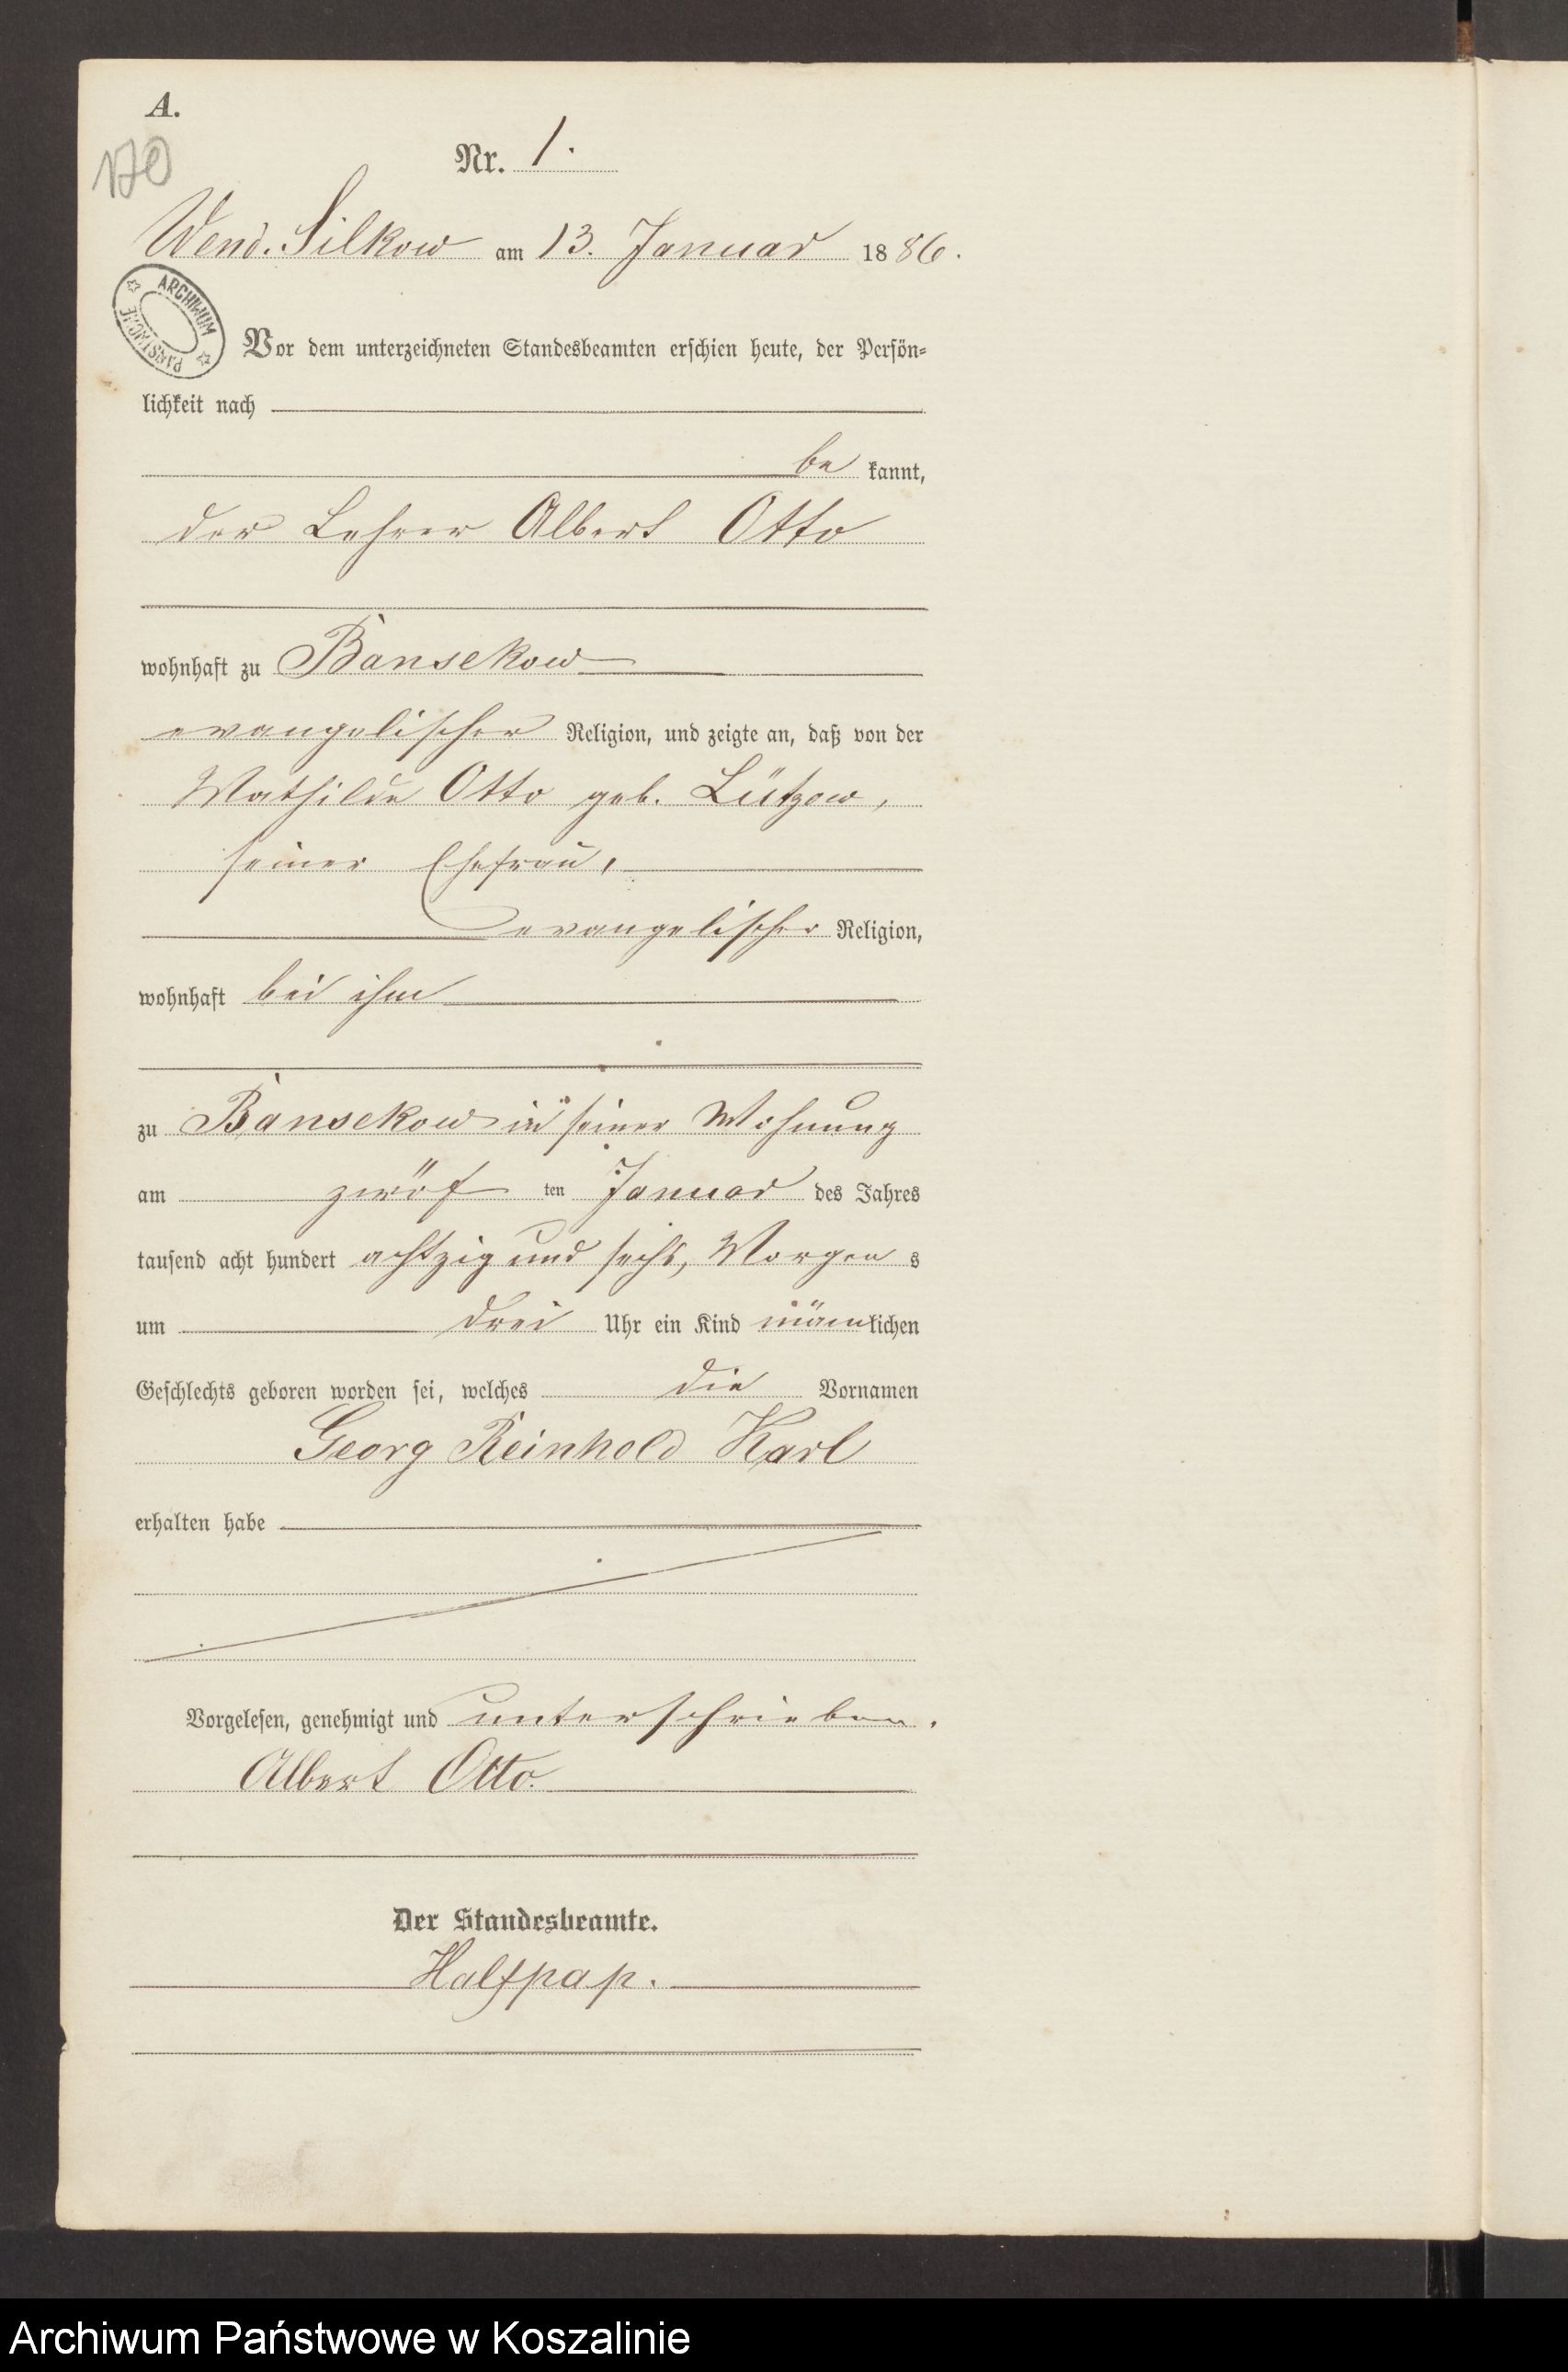 A.
Nr. 1.
170
Wend. Silkow am 13. Januar 1886.
ARCHIWUM PAŃSTWOWE
Vor dem unterzeichneten Standesbeamten erschien heute, der Persön-
lichkeit nach
be kannt,
der Lehrer Albert Otto
wohnhaft zu Bansekow
evangelischer Religion, und zeigte an, daß von der
Mathilde Otto geb. Lützow,
seiner Ehefrau,
evangelischer Religion,
wohnhaft bei ihm
zu Bansekow in seiner Wohnung
am zwöf ten Januar des Jahres
tausend acht hundert achtzig und sechs, Morgen s
um drei Uhr ein Kind männlichen
Geschlechts geboren worden sei, welches die Vornamen
Georg Reinhold Karl
erhalten habe
Vorgelesen, genehmigt und unterschrieben.
Albert Otto.
Der Standesbeamte.
Halfpap.
Archiwum Państwowe w Koszalinie